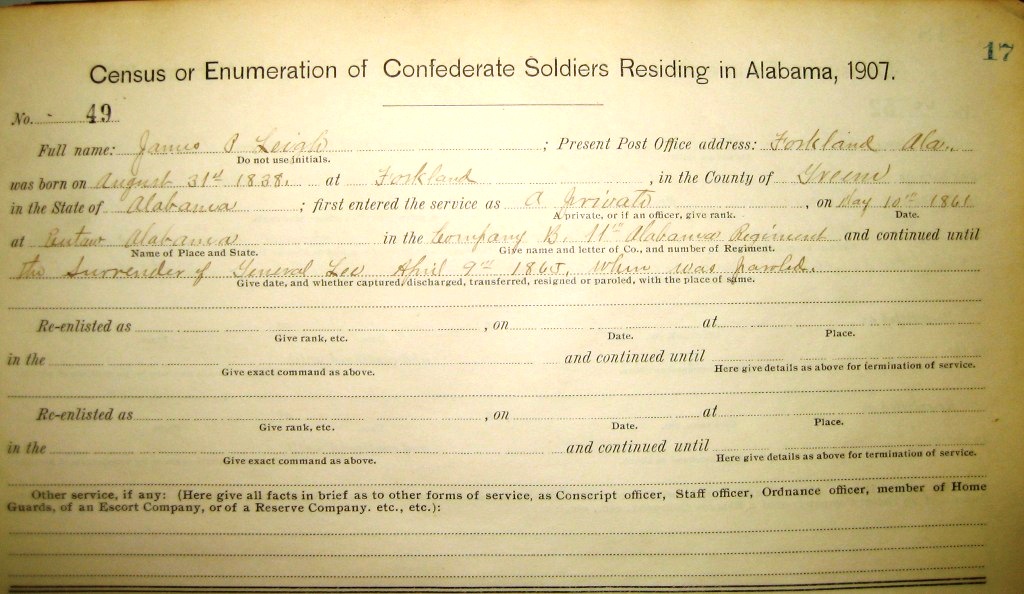 17
Census or Enumeration of Confederate Soldiers Residing in Alabama, 1907.
No. 49
Full name: James P Leigh ; Present Post Office address: Forkland Ala.
Do not use initials.
was born on August 31st 1838. at Forkland , in the County of Greene
in the State of Alabama ; first entered the service as A Private , on May 10th 1861
A private, or if an officer, give rank. Date.
at Eutaw Alabama in the Company B. 11th Alabama Regiment and continued until
Name of Place and State. Give name and letter of Co., and number of Regiment.
the Surrender of General Lee April 9th 1865. When was paroled.
Give date, and whether captured, discharged, transferred, resigned or paroled, with the place of same.
Re-enlisted as , on at
Give rank, etc. Date. Place.
in the and continued until
Give exact command as above. Here give details as above for termination of service.
Re-enlisted as , on at
Give rank, etc. Date. Place.
in the and continued until
Give exact command as above. Here give details as above for termination of service.
Other service, if any: (Here give all facts in brief as to other forms of service, as Conscript officer, Staff officer, Ordnance officer, member of Home
Guards, of an Escort Company, or of a Reserve Company. etc., etc.):